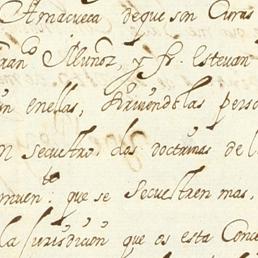 Amacueca deque son Curas
ran.co Muñoz, y fr. Estevan
enellas, sirviendolas perso
secuestro, dos doctrinas del
que se secuestren mas,
la jurisdicion que es esta Conce